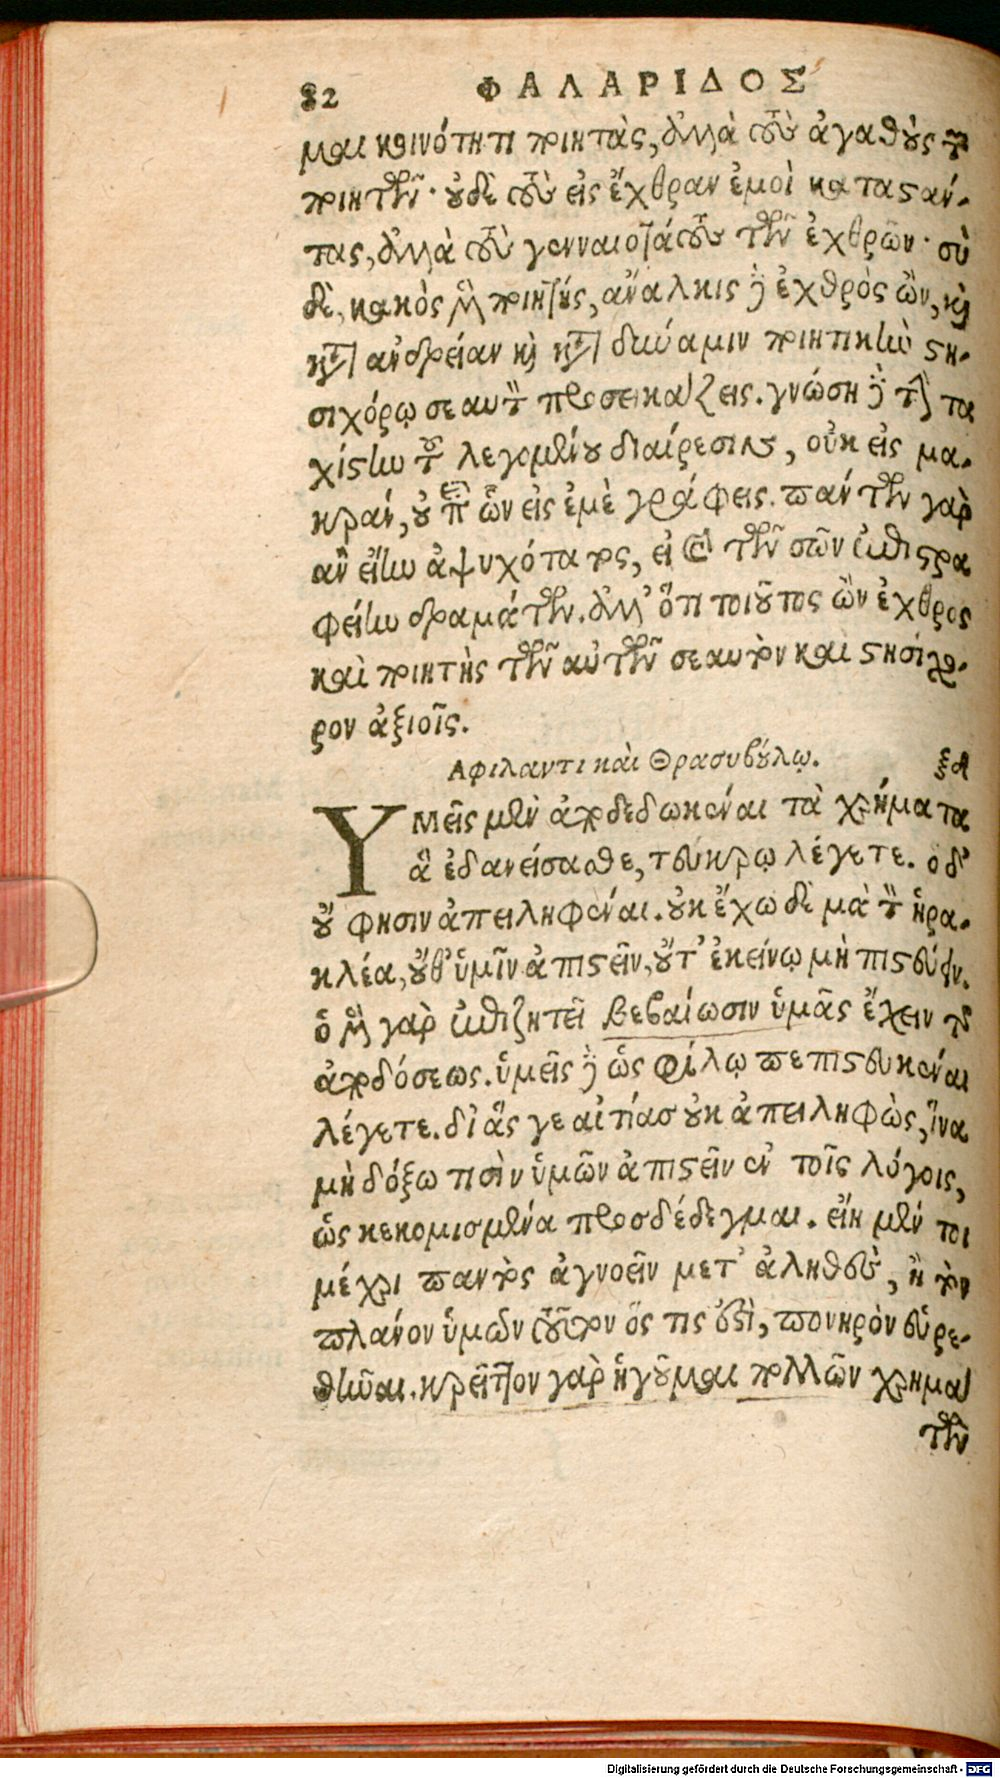 82 ΦΑΛΑΡΙΔΟΣ
μαι κοινότητι ποιητὰς, ἀλλὰ τοὺς ἀγαθοὺς τῶν
ποιητῶν· οὐδὲ τοὺς εἰς ἔχθραν ἐμοὶ καταστάν-
τας, ἀλλὰ τοὺς γενναιοτάτους τῶν ἐχθρῶν· σὺ
δὲ, κακὸς μὲν ποιητὴς, ἄναλκις δὲ ἐχθρὸς ὢν, καὶ
κατ' ἀνδρείαν καὶ κατὰ δύναμιν ποιητικὴν στη-
σιχόρῳ σεαυτὸν προσεικάζεις. γνώσῃ δὲ τὴν τα
χίστην τοῦ λεγομένου διαίρεσιν, οὐκ εἰς μα-
κράν, οὐ ὧν εἰς ἐμὲ γράφεις. πάντων γὰρ
ἂν εἴην ἀψυχότατος, εἰ τῶν σῶν ἐπιστρα
φείην δραμάτων. ἀλλ' ὅτι τοιοῦτος ὢν ἐχθρὸς
καὶ ποιητὴς τῶν αὐτῶν σεαυτὸν καὶ στησίχο-
ρον ἀξιοῖς.
Αφιλαντι καὶ Θρασυβούλῳ. ξδ
ΥΜεῖς μὲν ἀποδεδωκέναι τὰ χρήματα
ἃ ἐδανείσασθε, τεύκρῳ λέγετε. ὁ δ'
οὔ φησιν ἀπειληφέναι. οὐκ ἔχω δὲ μὰ τὸν ἡρα-
κλέα, οὔθ' ὑμῖν ἀπιστεῖν, οὔτ' ἐκείνῳ μὴ πιστεύειν.
ὁ μὲν γὰρ ἐπιζητεῖ βεβαίωσιν ὑμᾶς ἔχειν τῆς
ἀποδόσεως. ὑμεῖς δὲ ὡς φίλῳ πεπιστευκέναι
λέγετε. δι' ἅς γε αἰτίας οὐκ ἀπειληφὼς, ἵνα
μὴ δόξω τισὶν ὑμῶν ἀπιστεῖν ἐν τοῖς λόγοις,
ὡς κεκομισμένα προσδέδεγμαι. εἴη μέν τοι
μέχρι παντὸς ἀγνοεῖν μετ' ἀληθοῦς, ἢ τὸν
πλάνον ὑμῶν τοῦτον ὅς τις ἐστὶ, πονηρὸν εὑρε-
θῆναι. κρεῖττον γὰρ ἡγοῦμαι πολλῶν χρημά
των
Digitalisierung gefördert durch die Deutsche Forschungsgemeinschaft - DFG